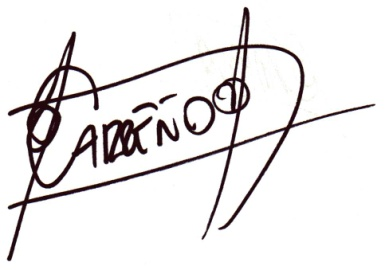 CARREÑO